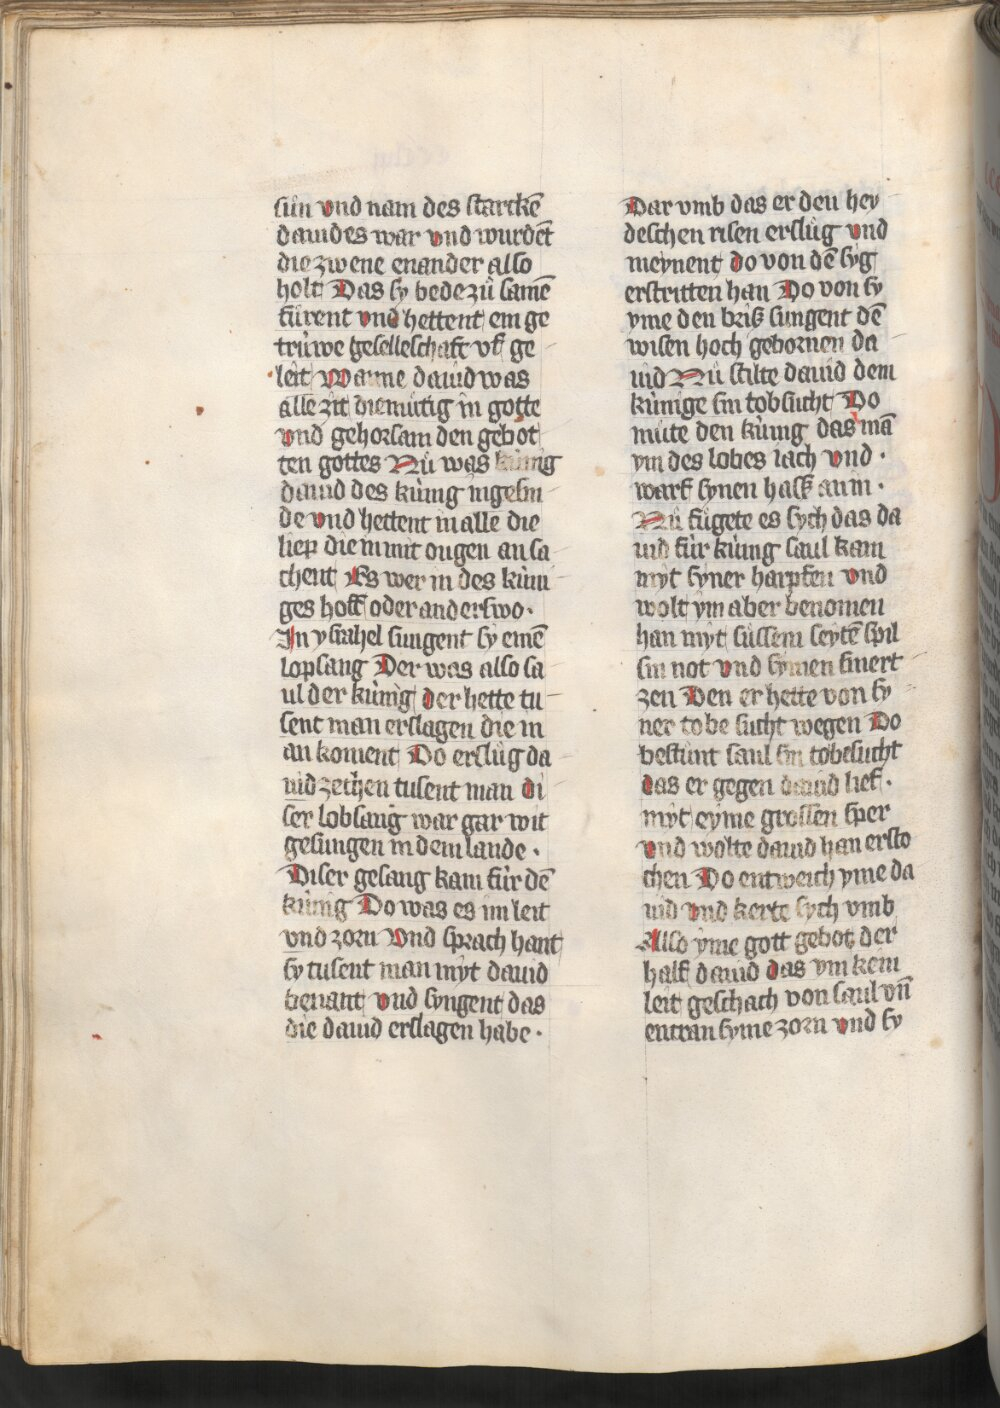 sún vnd nam des starckē
dauides war vnd wurdēt
die zwene enander also
holt Das sy bede zů samē
fůrent vnd hettent ein ge
trůwe geselleschaft vf ge
leit Wanne dauid was
alle zit diemůtig in gotte
vnd gehorsam den gebot
ten gottes Nů was kúnig
dauid des kúnig ingesin
de vnd hettent in alle die
liep die in mit ougen an sa
chent Es wer in des kúni
ges hoff oder anderswo·
In ysrahel sungent sy einē
lopsang Der was also sa
ul der kúnig der hette tu
sent man erslagen die in
an koment Do erslůg da
uid zechen tusent man di
ser lobsang war gar wit
gesungen in dem lande·
Diser gesang kam fúr dē
kúnig Do was es im leit
vnd zorn Vnd sprach hant
sy tusent man myt dauid
benant vnd syngent das
die dauid erslagen habe·
Dar vmb das er den hey
deschen risen erslůg vnd
meynent do von dē syg
erstritten han Do von sy
yme den briß sungent dē
wisen hoch gebornen da
uid Nů stilte dauid dem
kúnige sin tobsucht Do
můte den kúnig das man
ym des lobes iach vnd·
warf synen haß an in·
Nů fůgete es sych das da
uid fúr kúnig saul kam
myt syner harpfen vnd
wolt ym aber benomen
han myt sůssem seytē spil
sin not vnd synen smert
zen Den er hette von sy
ner tobe sucht wegen Do
bestůnt saul sin tobesucht
das er gegen dauid lief·
myt eyme grossen sper
vnd wolte dauid han ersto
chen Do entweich yme da
uid vnd kerte sych vmb
Also yme gott gebot der
half dauid das ym kein
leit geschach von saul vn̄
entran syme zorn vnd sy